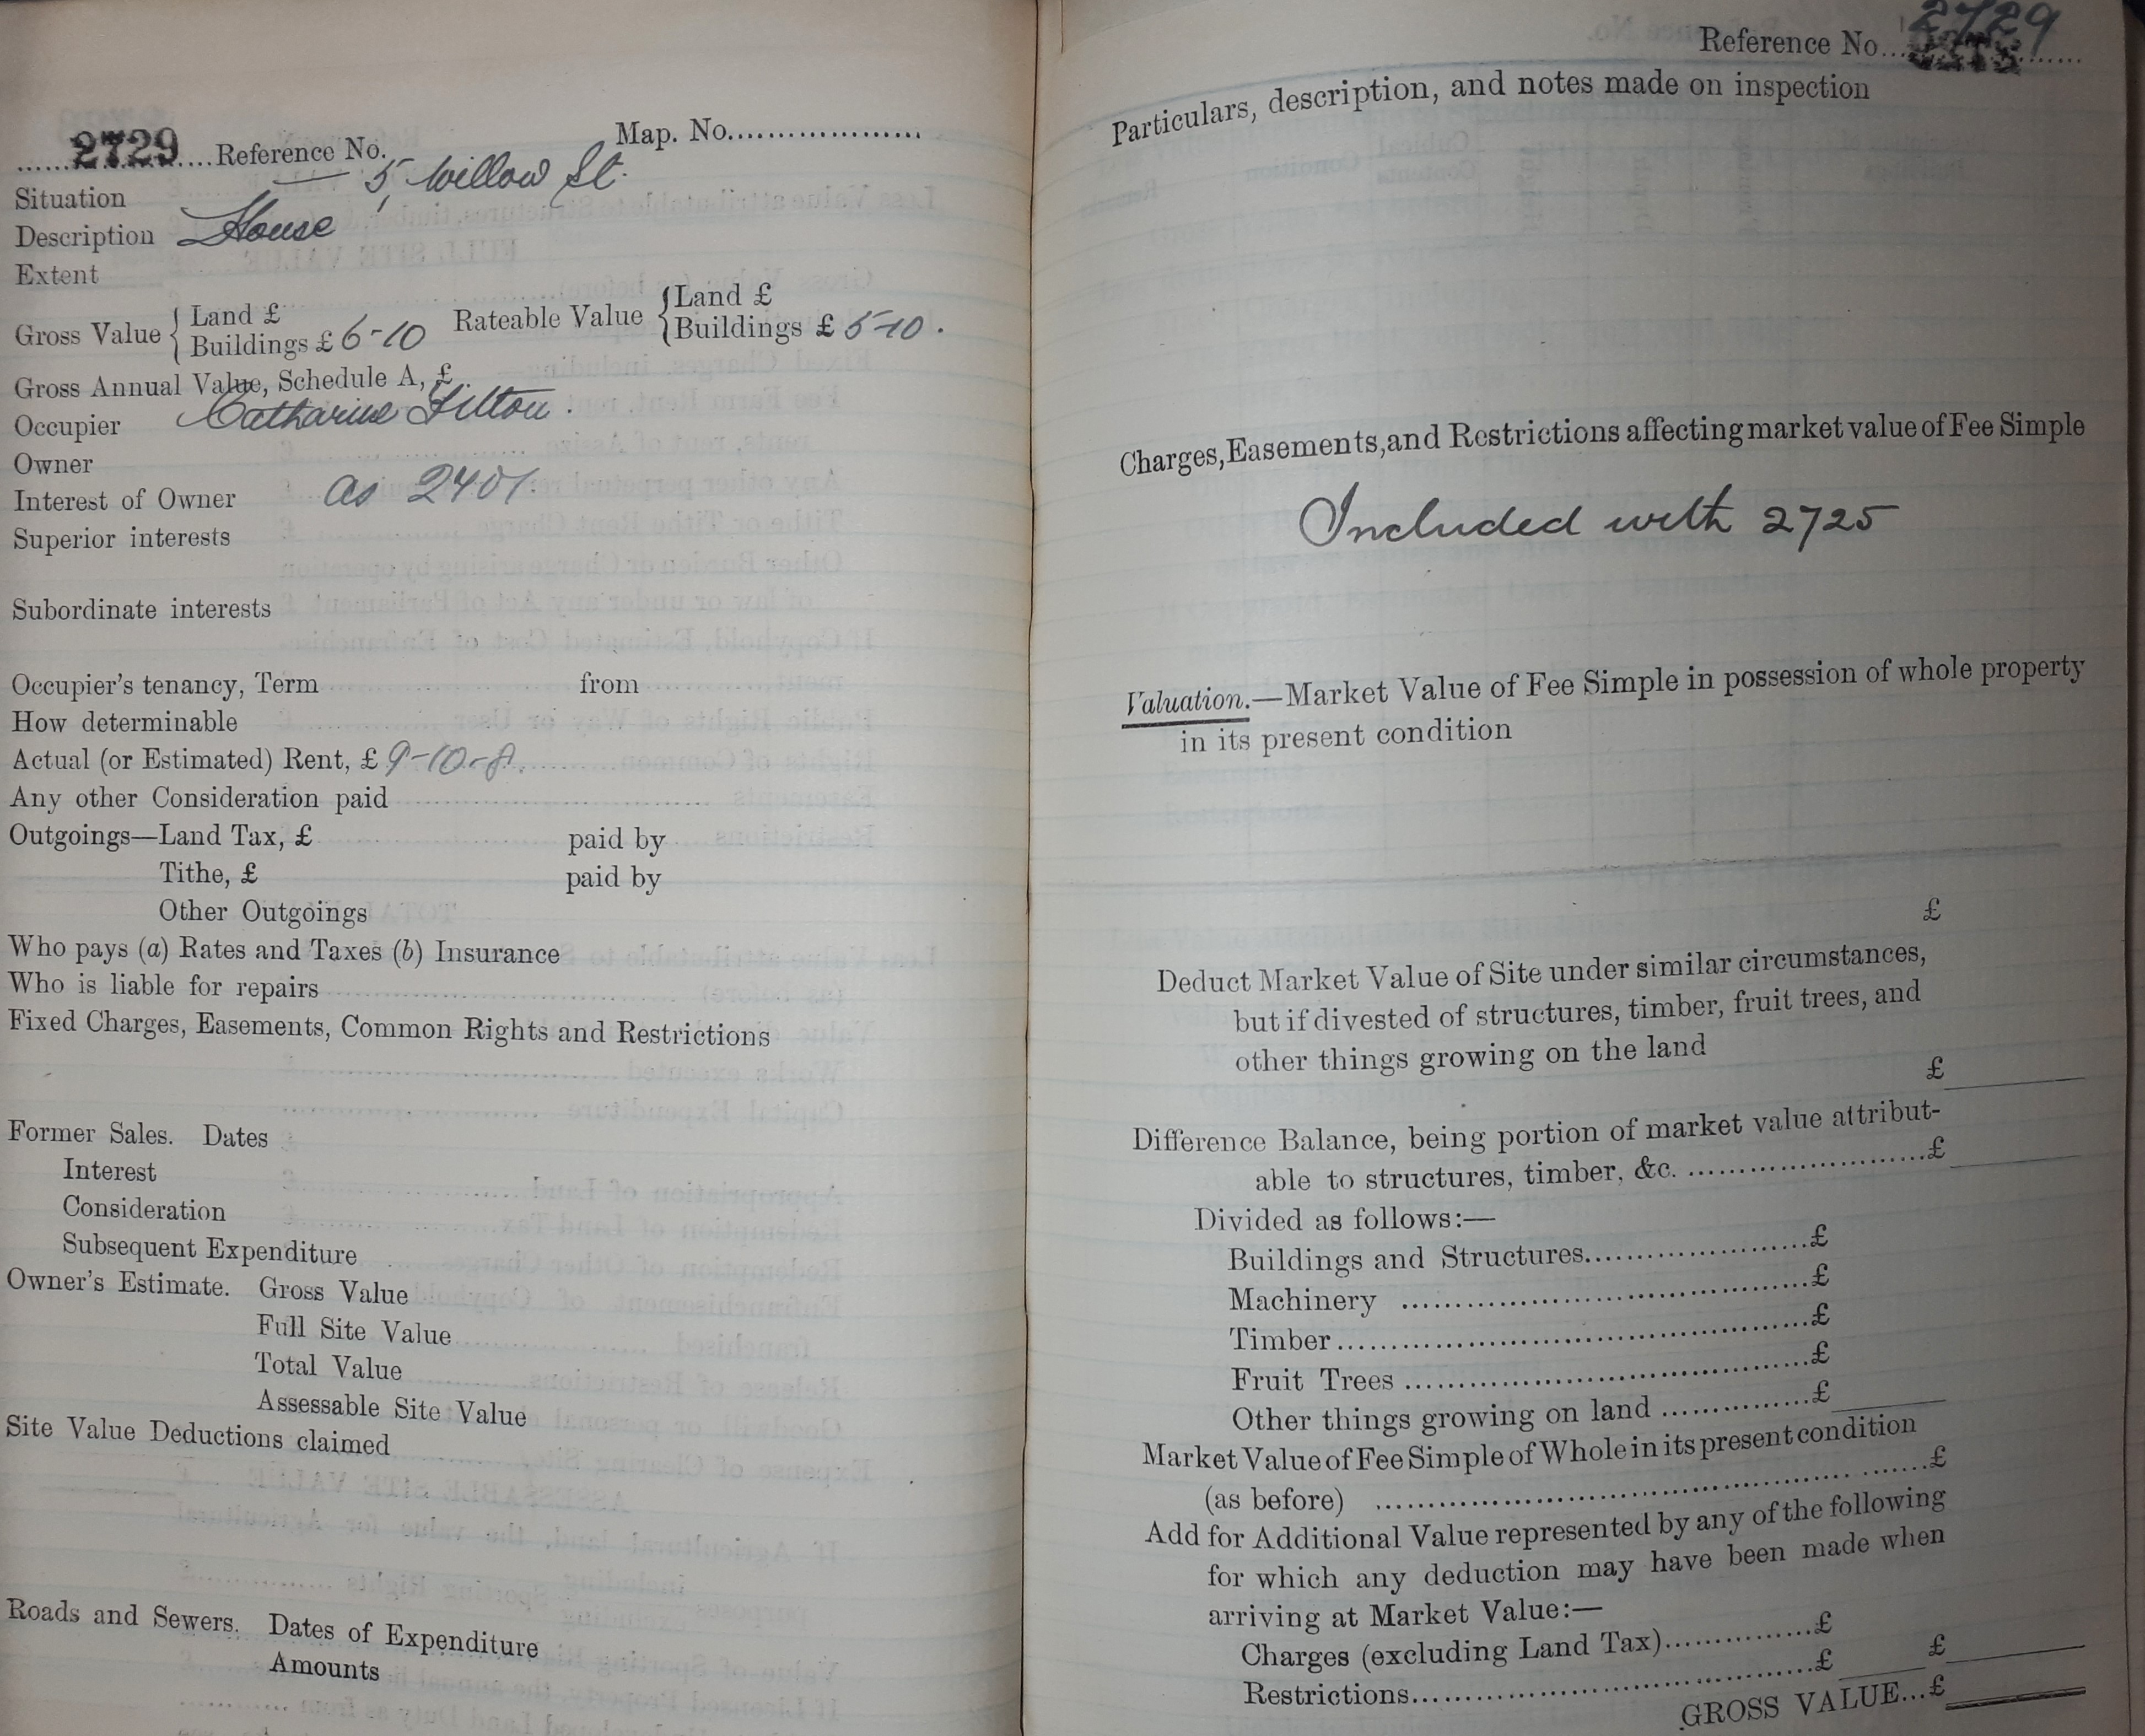 2729 Reference No. Map. No.
Situation 5, Willow St.
Description House
Extent
Gross Value { Land £
Buildings £ 6-10
Rateable Value { Land £
Buildings £ 5-10.
Gross Annual Value, Schedule A, £
Occupier Catharine Filton.
Owner
Interest of Owner as 2401.
Superior interests
Subordinate interests
Occupier's tenancy, Term from
How determinable
Actual (or Estimated) Rent, £ 9-10-8.
Any other Consideration paid
Outgoings—Land Tax, £ paid by
Tithe, £ paid by
Other Outgoings
Who pays (a) Rates and Taxes (b) Insurance
Who is liable for repairs
Fixed Charges, Easements, Common Rights and Restrictions
Former Sales. Dates
Interest
Consideration
Subsequent Expenditure
Owner's Estimate. Gross Value
Full Site Value
Total Value
Assessable Site Value
Site Value Deductions claimed
Roads and Sewers. Dates of Expenditure
Amounts
Reference No. 2729
Particulars, description, and notes made on inspection
Charges, Easements, and Restrictions affecting market value of Fee Simple
Included with 2725
Valuation.—Market Value of Fee Simple in possession of whole property
in its present condition
£
Deduct Market Value of Site under similar circumstances,
but if divested of structures, timber, fruit trees, and
other things growing on the land
£
Difference Balance, being portion of market value attribut-
able to structures, timber, &c. £
Divided as follows:—
Buildings and Structures £
Machinery £
Timber £
Fruit Trees £
Other things growing on land £
Market Value of Fee Simple of Whole in its present condition
(as before) £
Add for Additional Value represented by any of the following
for which any deduction may have been made when
arriving at Market Value:—
Charges (excluding Land Tax) £
Restrictions £ £
GROSS VALUE...£